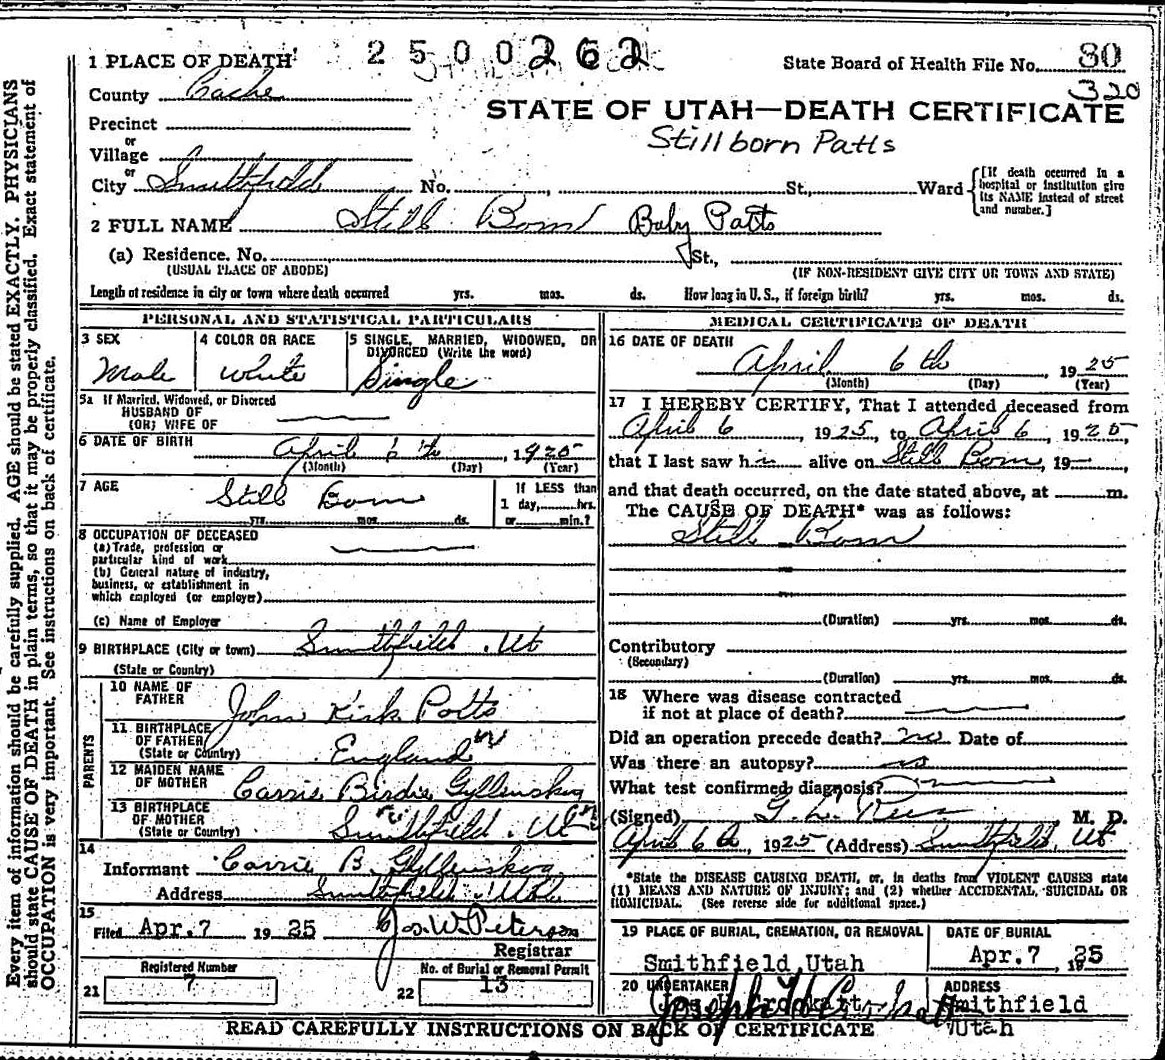 Every item of information should be carefully supplied. AGE should be stated EXACTLY. PHYSICIANS
should state CAUSE OF DEATH in plain terms, so that it may be properly classified. Exact statement of
OCCUPATION is very important. See instructions on back of certificate.
1 PLACE OF DEATH 2500262 State Board of Health File No. 80
320
County Cache
STATE OF UTAH—DEATH CERTIFICATE
Precinct
Stillborn Patts
or
Village
or
City Smithfield No. , St., Ward
[If death occurred in a
hospital or institution give
its NAME instead of street
and number.]
2 FULL NAME Still Born Baby Patts
(a) Residence. No. St.,
(USUAL PLACE OF ABODE) (IF NON-RESIDENT GIVE CITY OR TOWN AND STATE)
Length of residence in city or town where death occurred yrs. mos. ds. How long in U. S., if foreign birth? yrs. mos. ds.
PERSONAL AND STATISTICAL PARTICULARS
3 SEX
Male
4 COLOR OR RACE
White
5 SINGLE, MARRIED, WIDOWED, OR
DIVORCED (Write the word)
Single
5a If Married, Widowed, or Divorced
HUSBAND OF
(OR) WIFE OF
6 DATE OF BIRTH April 6 th, 1925
(Month) (Day) (Year)
7 AGE Still Born
yrs. mos. ds.
If LESS than
1 day, hrs.
or min.?
8 OCCUPATION OF DECEASED
(a) Trade, profession or
particular kind of work
(b) General nature of industry,
business, or establishment in
which employed (or employer)
(c) Name of Employer
9 BIRTHPLACE (City or town) Smithfield, Ut
(State or Country)
PARENTS
10 NAME OF
FATHER John Kirk Potts
11 BIRTHPLACE
OF FATHER
(State or Country) England
12 MAIDEN NAME
OF MOTHER Carrie Birdie Gyllenskog
13 BIRTHPLACE
OF MOTHER
(State or Country) Smithfield, Ut
14
Informant Carrie B. Gyllenskog
Address Smithfield, Utah
15
Filed Apr.7 1925 Jos. W. Peterson
Registrar
21 Registered Number
7
22 No. of Burial or Removal Permit
13
MEDICAL CERTIFICATE OF DEATH
16 DATE OF DEATH
April 6 th, 1925
(Month) (Day) (Year)
17 I HEREBY CERTIFY, That I attended deceased from
April 6, 1925, to April 6, 1925,
that I last saw him alive on Still Born, 19—,
and that death occurred, on the date stated above, at m.
The CAUSE OF DEATH* was as follows:
Still Born
(Duration) yrs. mos. ds.
Contributory
(Secondary)
(Duration) yrs. mos. ds.
18 Where was disease contracted
if not at place of death?
Did an operation precede death? no Date of
Was there an autopsy? no
What test confirmed diagnosis?
(Signed) G. L. Rees M. D.
April 6, 1925 (Address) Smithfield, Ut
*State the DISEASE CAUSING DEATH, or, in deaths from VIOLENT CAUSES state
(1) MEANS AND NATURE OF INJURY; and (2) whether ACCIDENTAL, SUICIDAL OR
HOMICIDAL. (See reverse side for additional space.)
19 PLACE OF BURIAL, CREMATION, OR REMOVAL
Smithfield, Utah
DATE OF BURIAL
Apr.7, 1925
20 UNDERTAKER
ADDRESS
Smithfield
Utah
READ CAREFULLY INSTRUCTIONS ON BACK OF CERTIFICATE